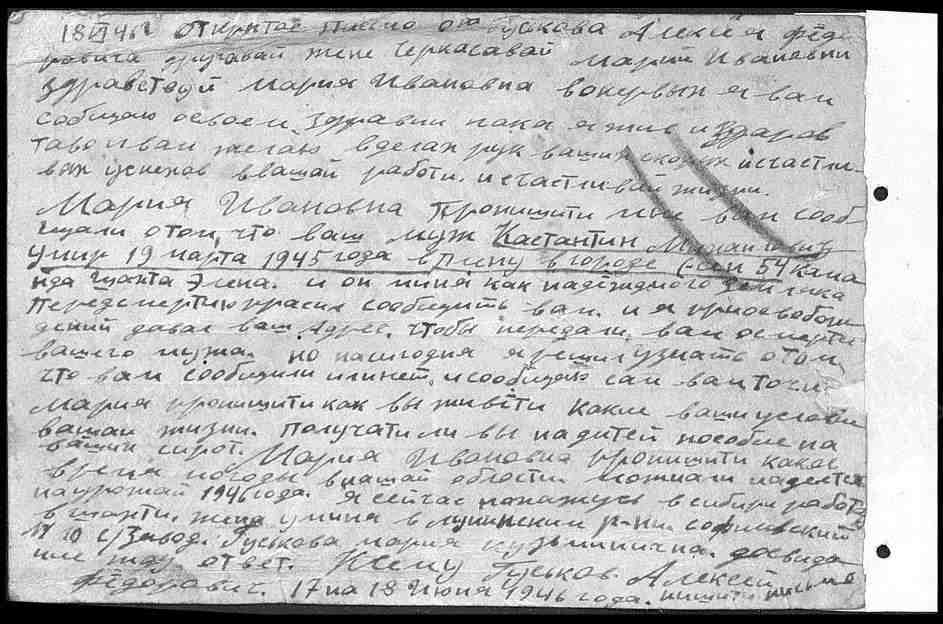 18 VI 46 г открытое письмо от Гускова Алексея Фёдо
ровича друговай жене Черкасавай Марии Ивановни
Здравствуй Мария Ивановна вопервых я вам
сообщаю освоем здравии пока я жив и здаров
таво и вам желаю вделах рук ваших скорых исчастли
вых успехов ввашай работи. исчастливай жизни.
Мария Ивановна пропишити мне вам сооб
щали отом, что ваш муж Кастантин Михайлович
умир 19 марта 1945 года вплену вгороде 54
шахта Элена. и он миня как надёжднога земляка
передсмертию прасил сообщить вам. и я
давал ваш Адрес. чтобы передали вам осмерти
вашего мужа. но насигодня я решил узнать отом
что вам сообщили илинет. исообщаю сам вам точн
Мария пропишити как вы живёти какие ваши услови
вашаи жизни. получаити ли вы надитей пособие на
ваших сирот. Мария Ивановна пропишити какое
время погоды ввашай области. можнали надеется
наурожай 1946 года. я сейчас нахажусь всибири работ
вшахти. жена у миня в р-ни.
с/завод. Гуськова мария кузьминична. досвида
ние жду ответ. К сему Гуськов Алексей
Фёдорович. 17 на 18 Июня 1946 года. пишити письма